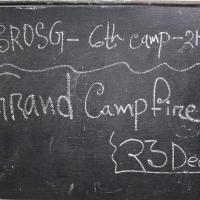 GROSG - 6th camp - 2
Grand Campfire
23 Dec